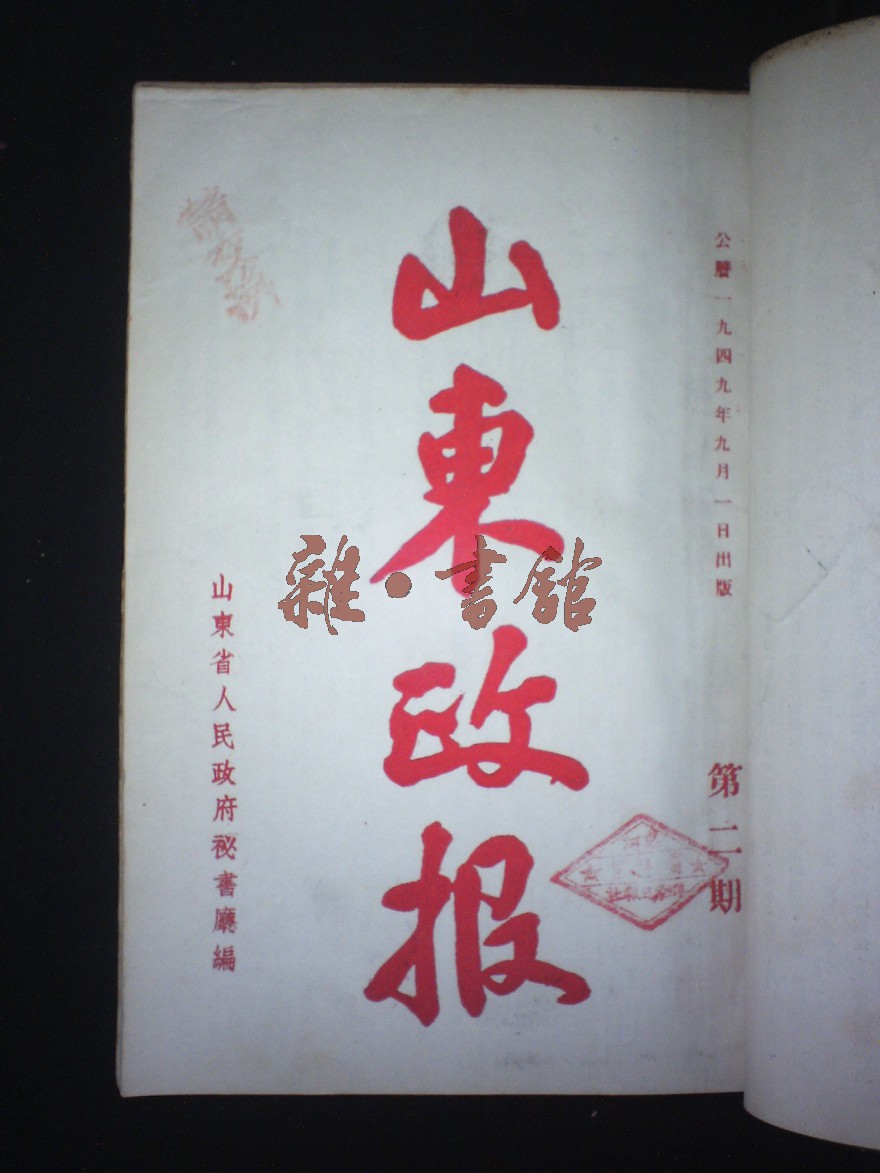 公曆一九四九年九月一日出版
第二期
山東政报
山東省人民政府祕書廳編
雜·書館